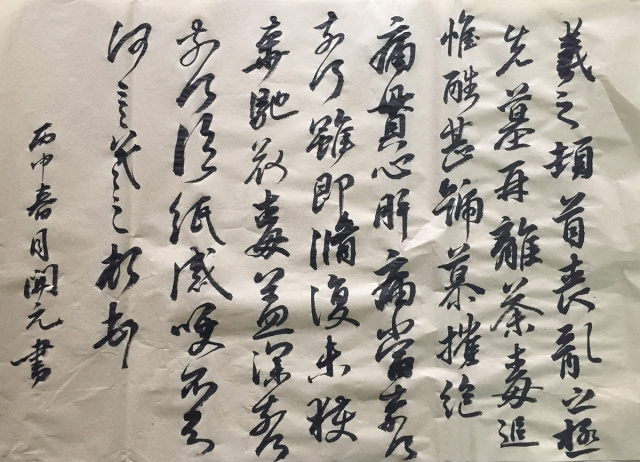 羲之頓首喪亂之極
先墓再離荼毒追
惟酷甚號慕摧絶
痛貫心肝痛當奈何
奈何雖即脩復未獲
奔馳哀毒益深奈何
奈何臨紙感哽不知
何言羲之頓首
丙申春月開元書